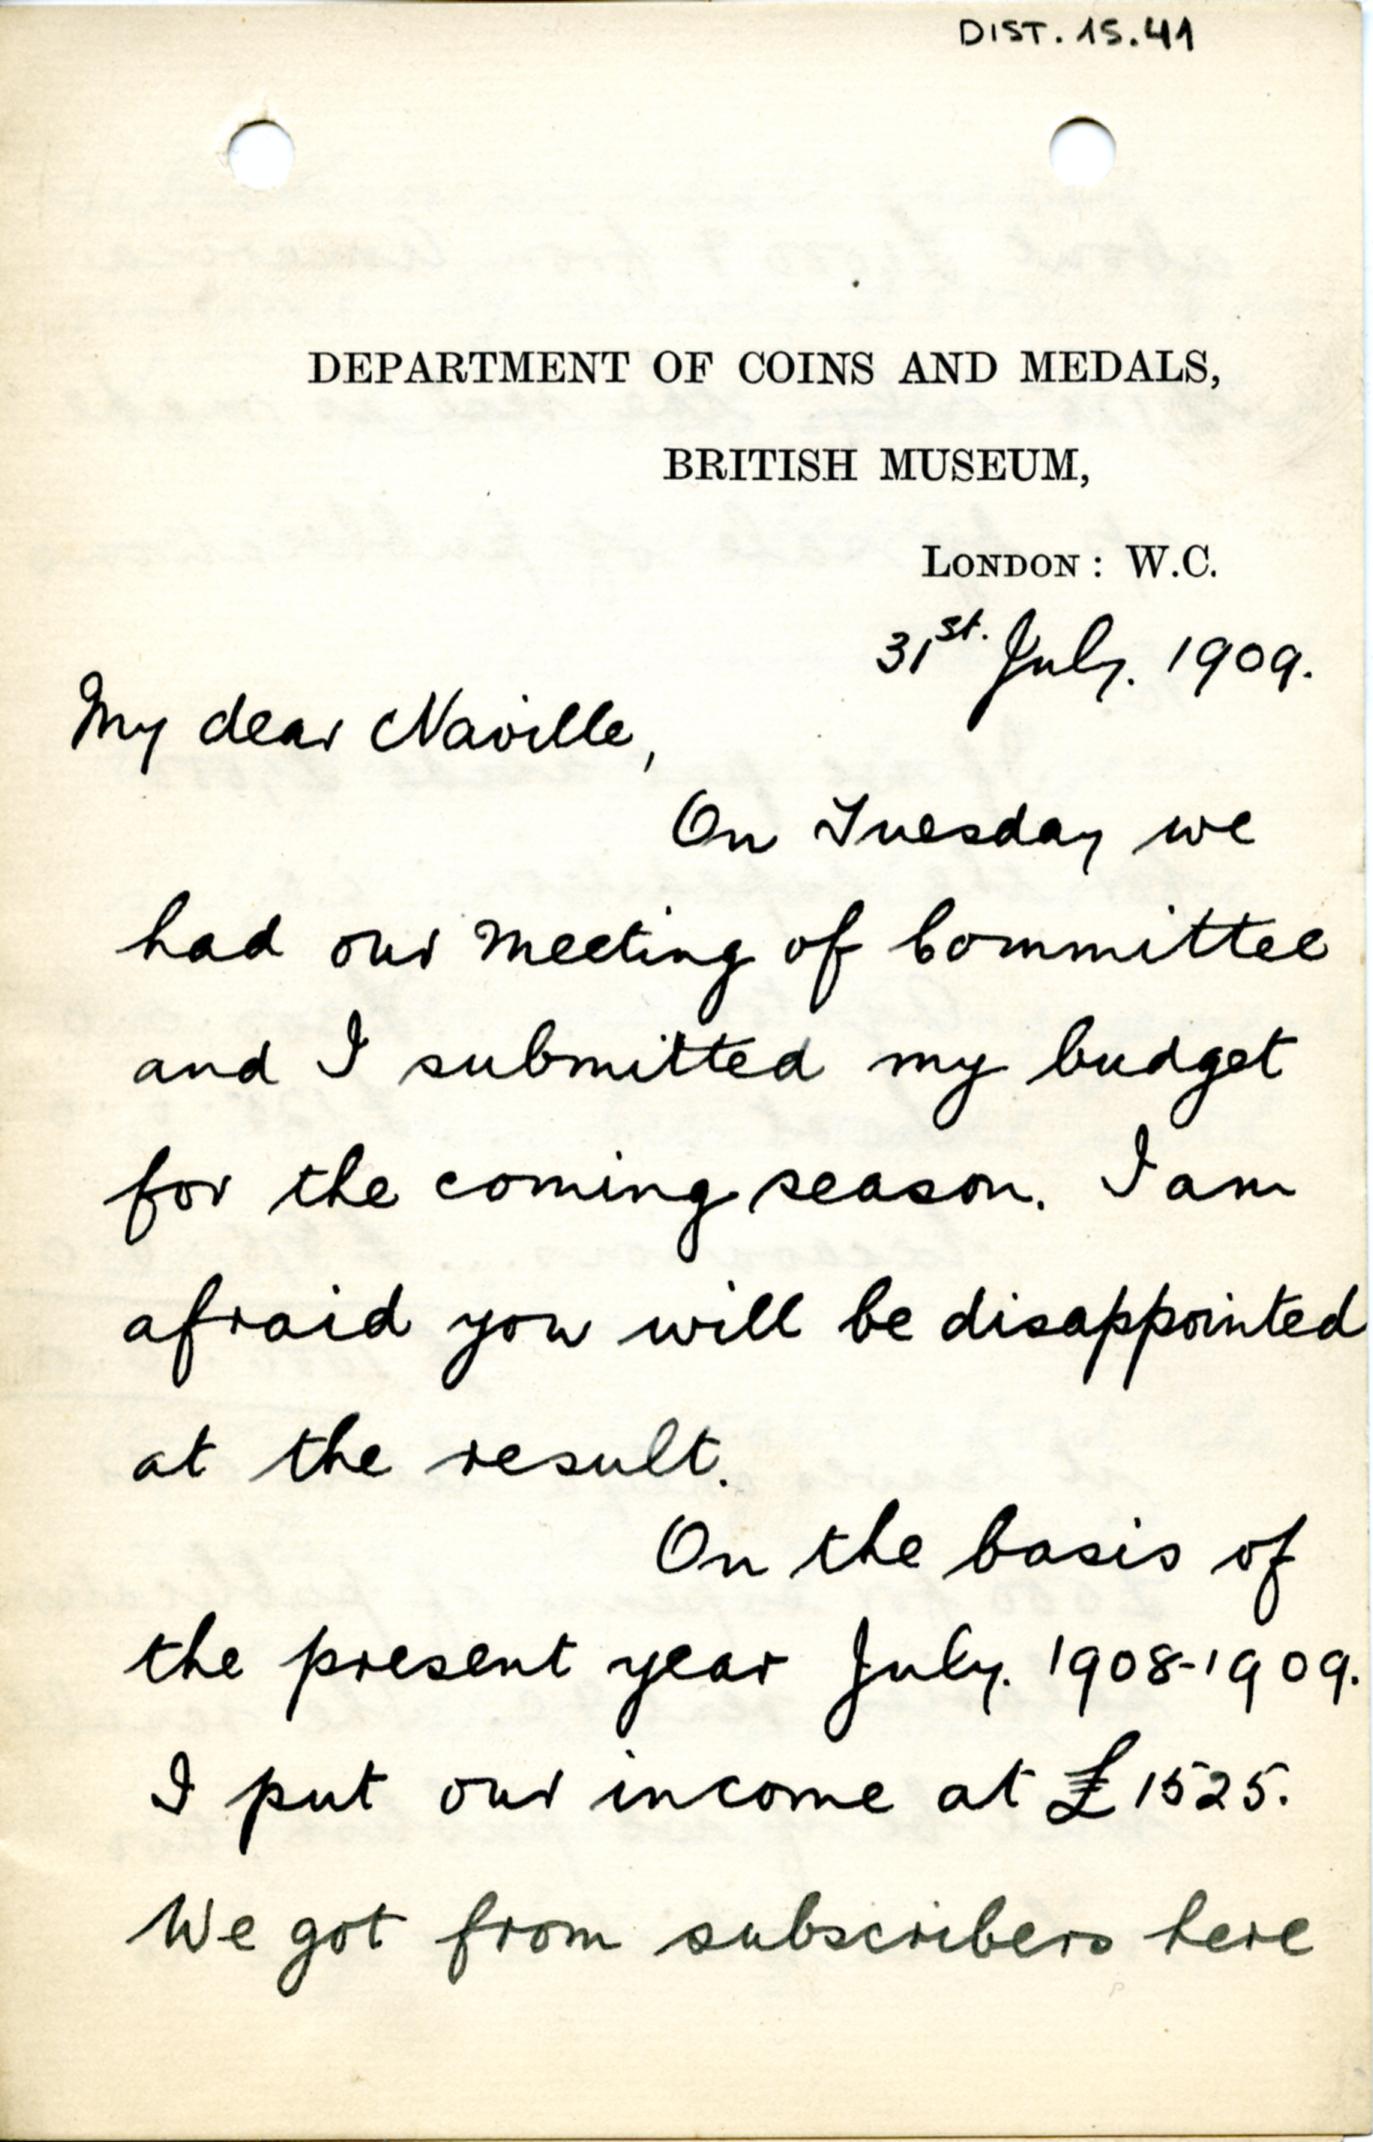 DIST. 15.41
DEPARTMENT OF COINS AND MEDALS,
BRITISH MUSEUM,
LONDON: W.C.
31st. July. 1909.
My dear Naville,
On Tuesday we
had our meeting of Committee
and I submitted my budget
for the coming season. I am
afraid you will be disappointed
at the result.
On the basis of
the present year July. 1908-1909.
I put our income at £1525.
We got from subscribers here